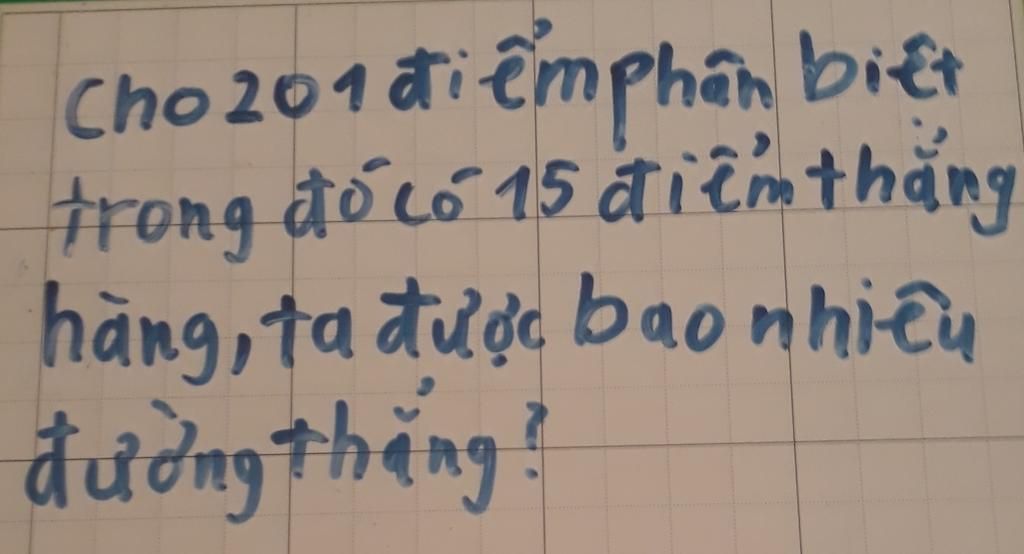 Cho 201 điểm phân biệt
trong đó có 15 điểm thẳng
hàng, ta được bao nhiêu
đường thẳng?